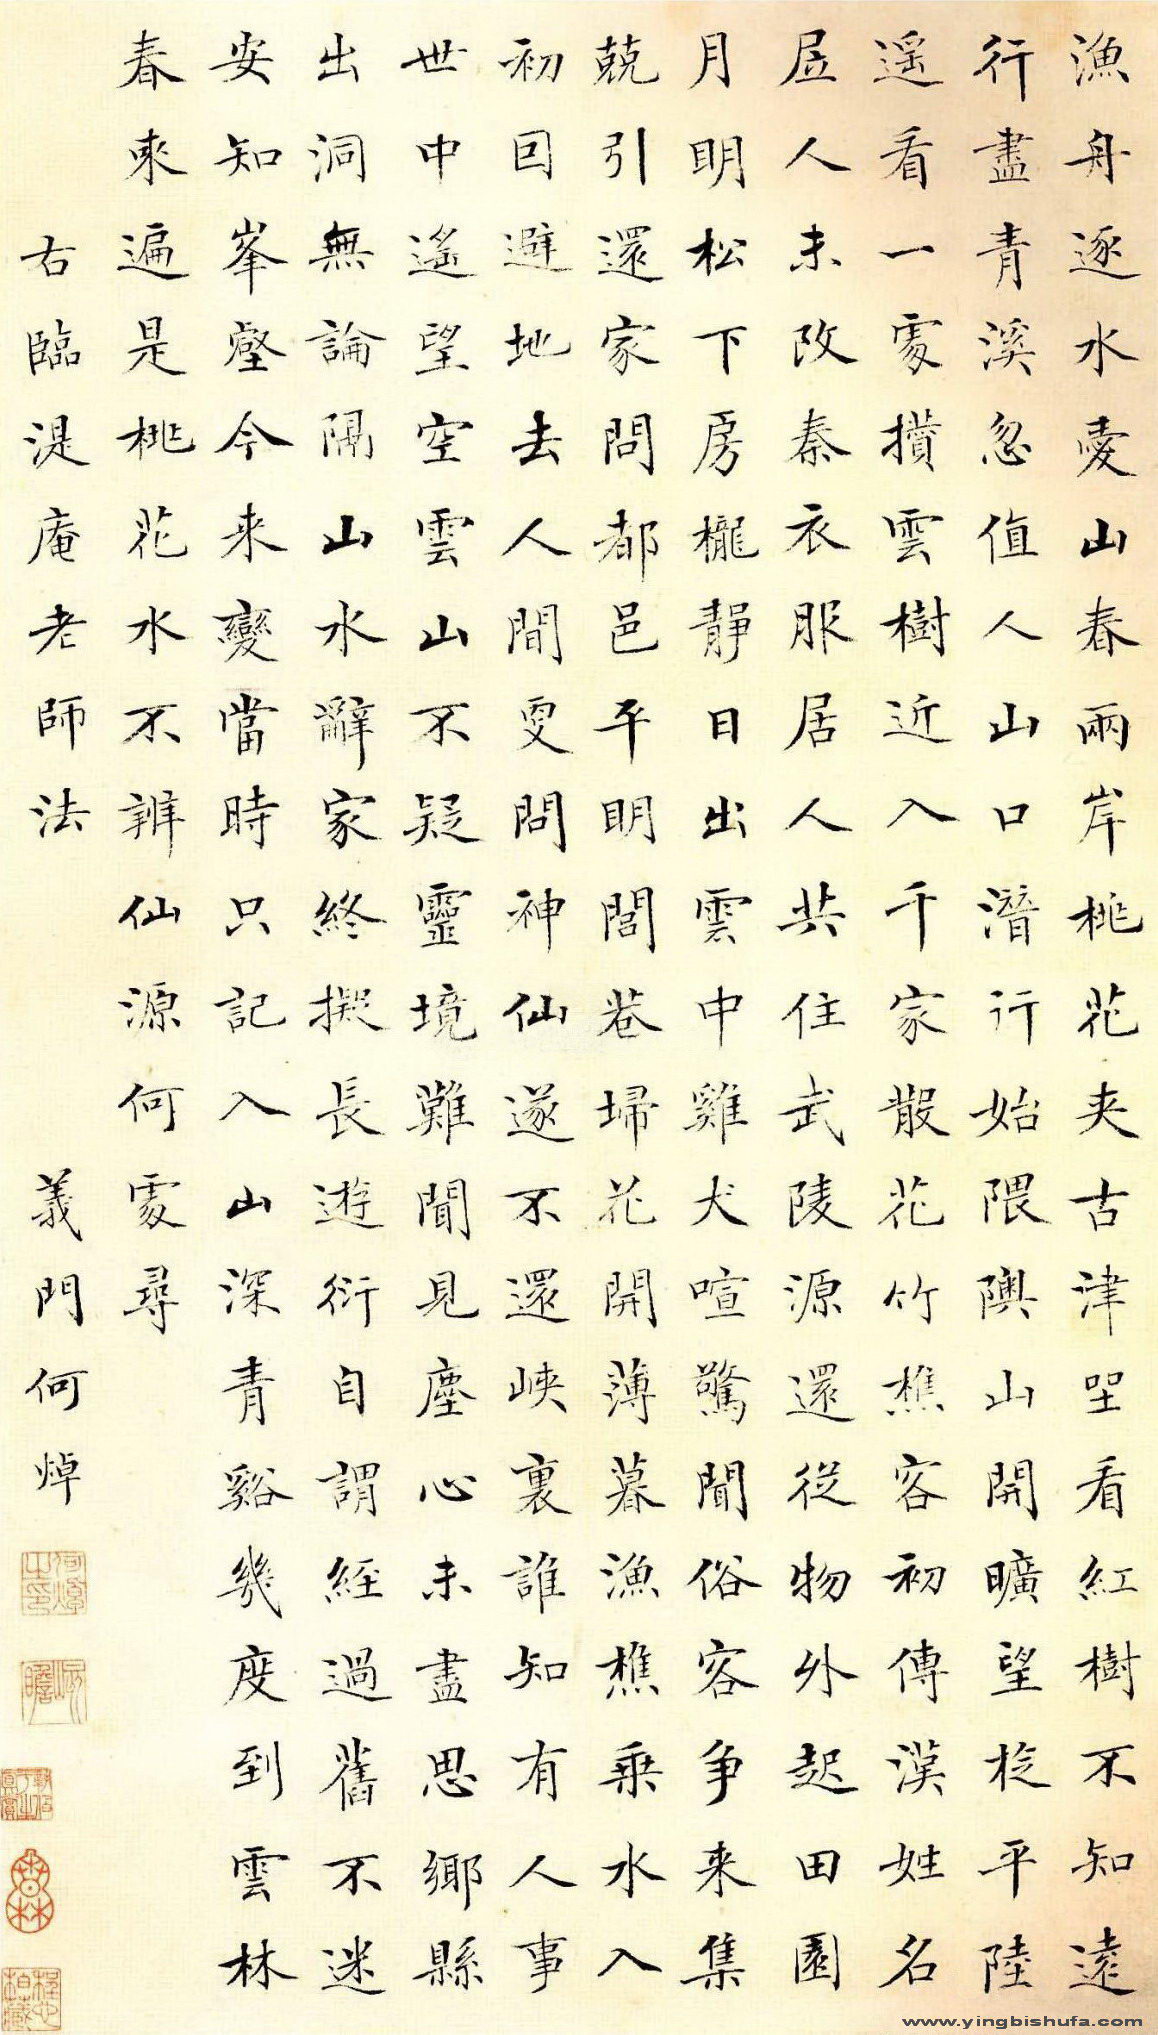 漁舟逐水愛山春兩岸桃花夾古津坐看紅樹不知遠
行盡青溪忽值人山口潛行始隈隩山開曠望旋平陸
遥看一處攢雲樹近入千家散花竹樵客初傳漢姓名
居人未改秦衣服居人共住武陵源還從物外起田園
月明松下房櫳靜日出雲中雞犬喧驚聞俗客争来集
競引還家問都邑平明閭巷埽花開薄暮漁樵乗水入
初因避地去人間更問神仙遂不還峽裏誰知有人事
世中遙望空雲山不疑靈境難聞見塵心未盡思鄉縣
出洞無論隔山水辭家終擬長遊衍自謂經過舊不迷
安知峯壑今来變當時只記入山深青谿幾度到雲林
春來遍是桃花水不辨仙源何處尋
右臨湜庵老師法 義門何焯
何焯之印
屺瞻
www.yingbishufa.com